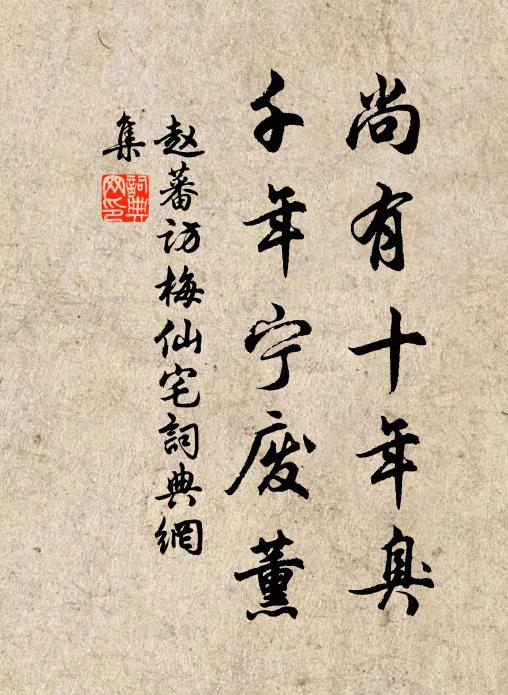 尚有十年臭
千年宁废薰
赵蕃访梅仙宅词典網
集
詞典
网印